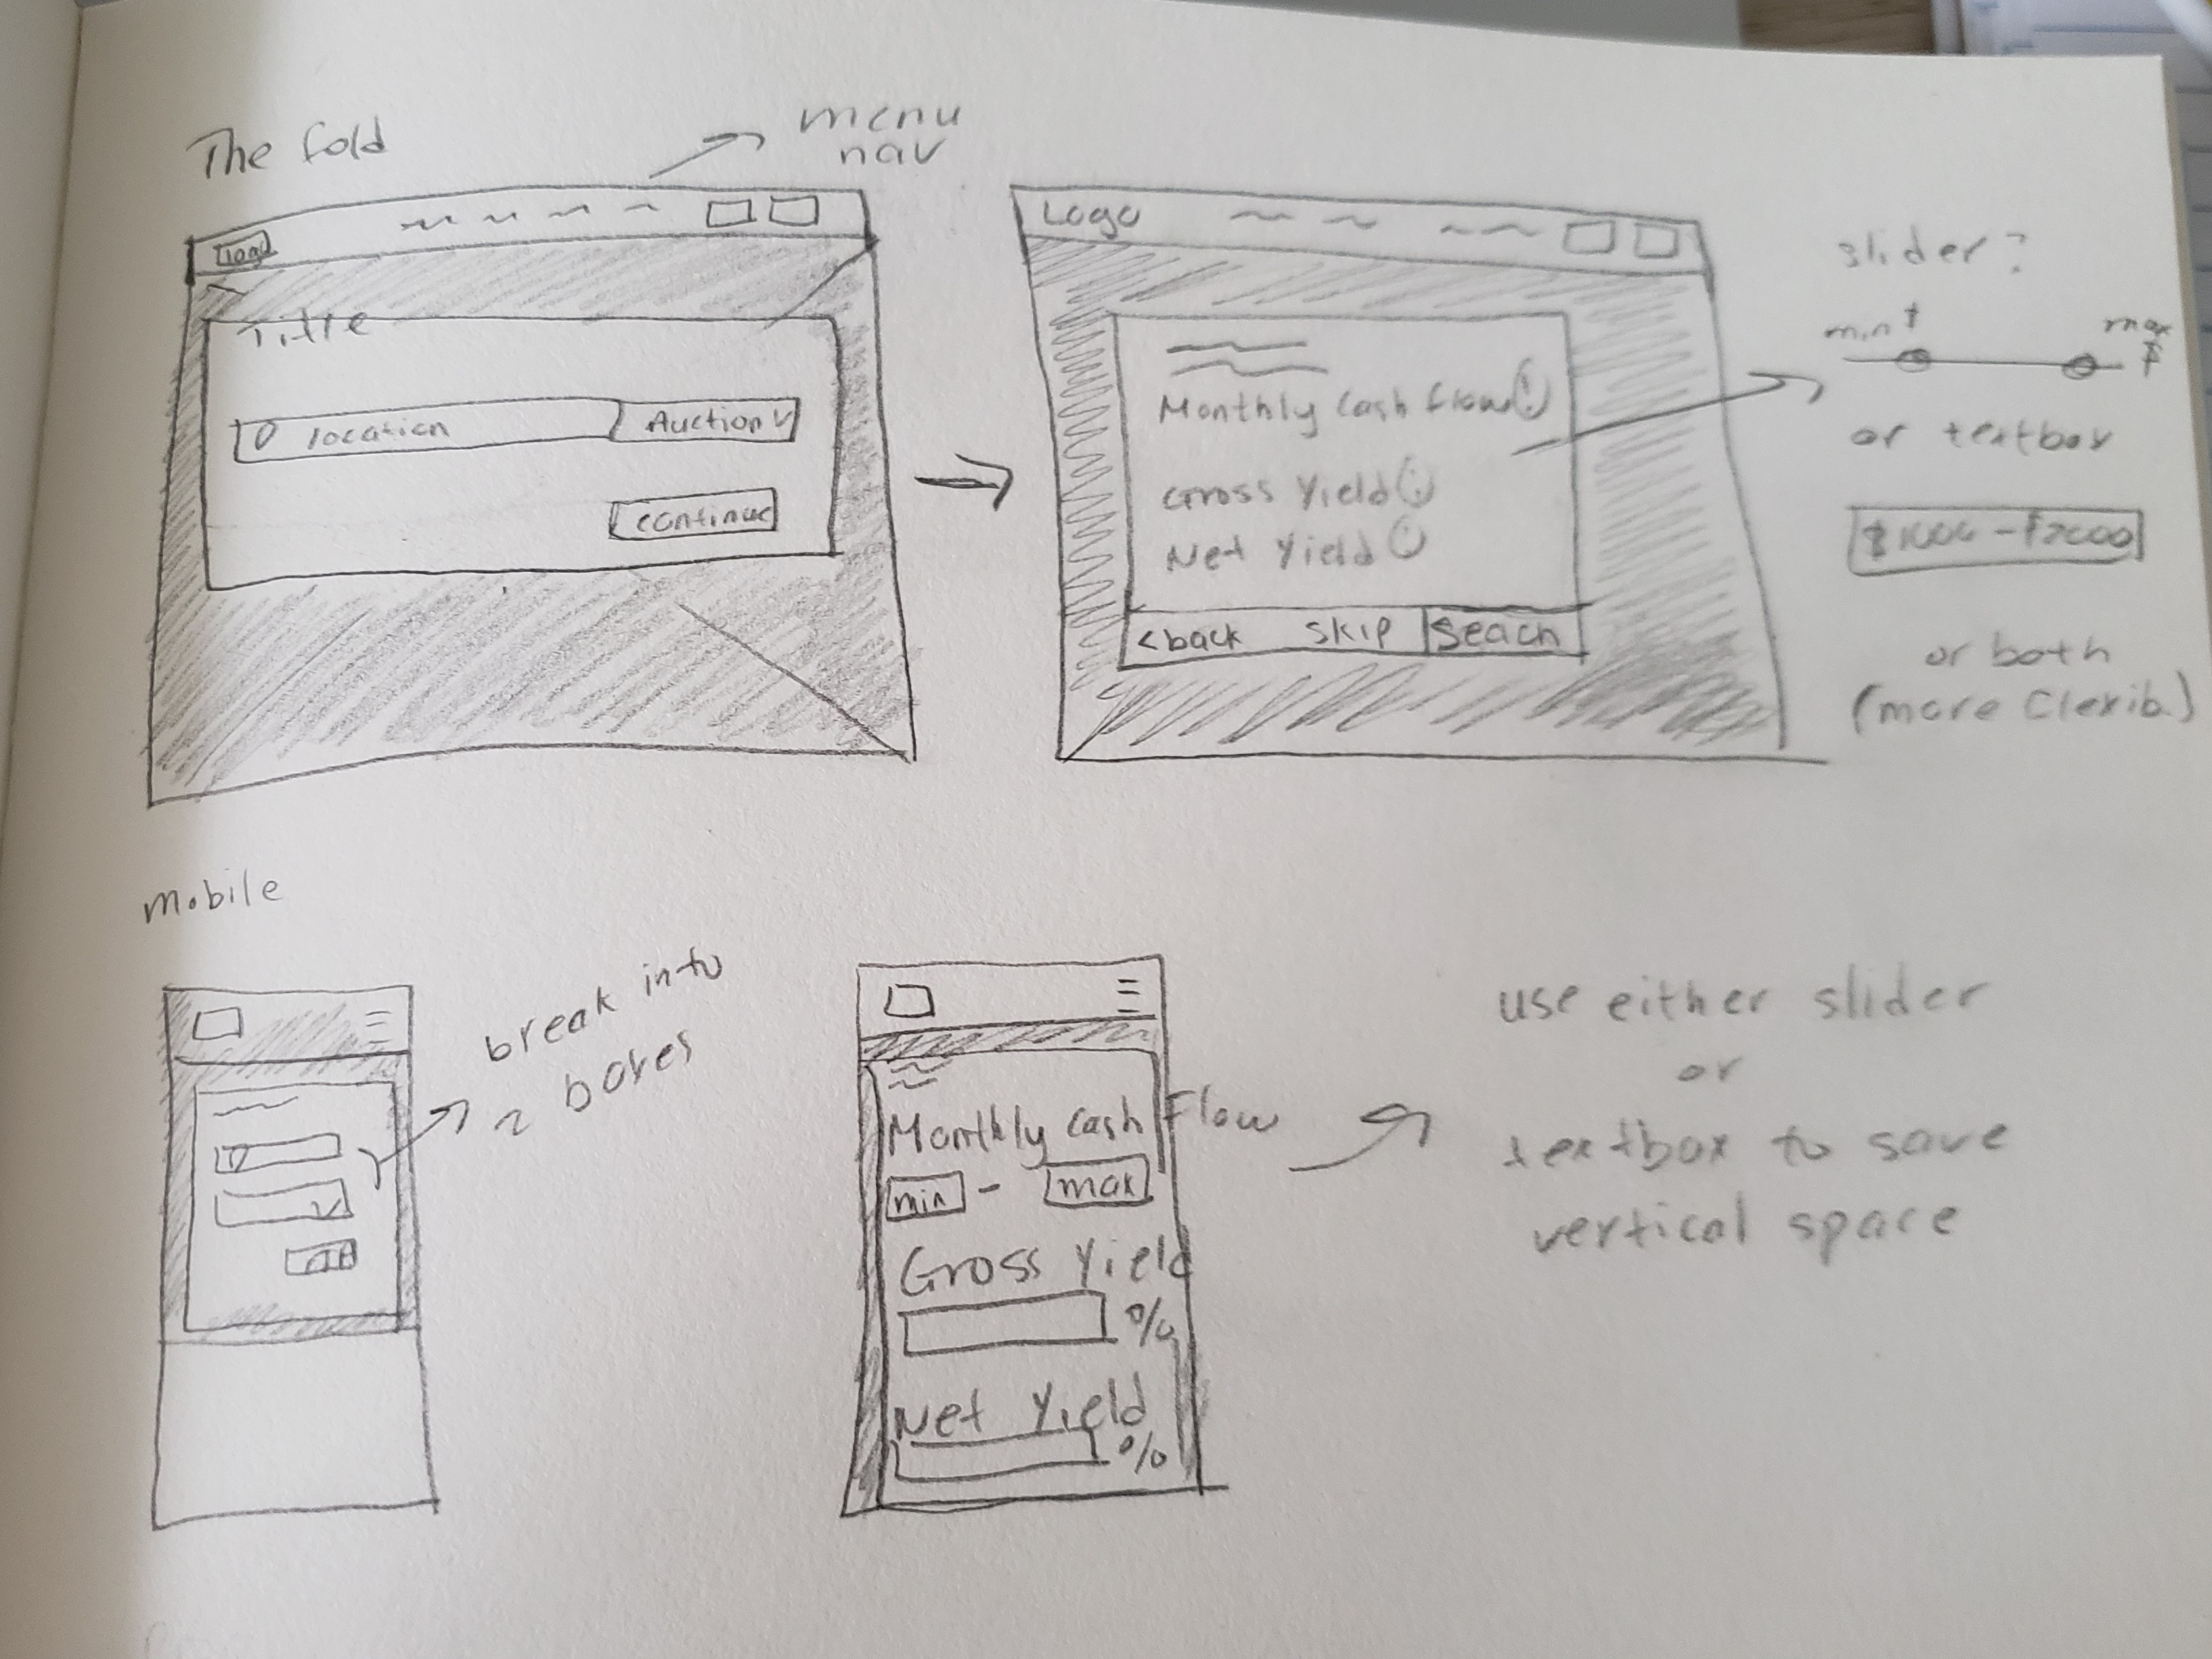 The fold
menu
nav
logo
Title
location
Auction
continue
Logo
Monthly Cash flow
Gross Yield
Net Yield
< back
SKIP
Seach
slider?
min
max
$
or textbox
- $2000
or both
(more
mobile
break into
2 boxes
Monthly Cash Flow
min - max
Gross Yield
%
Net Yield
%
use either slider
or
textbox to save
vertical space